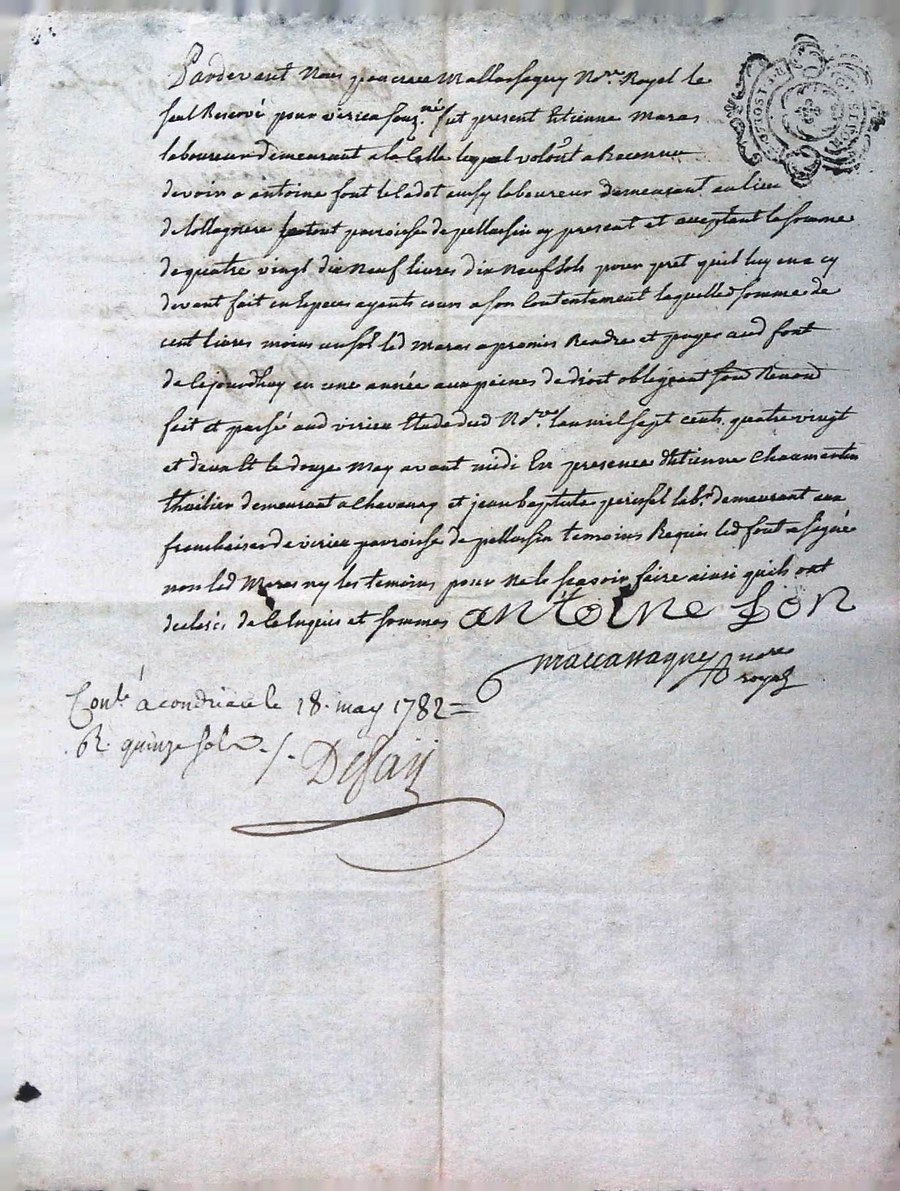 Pardevant Nous Mallassagny No.re Royal le
seul Reservé pour virieu souz.né fut present Etienne Maras
laboureur demeurant a la Celle lequel volont a Reconnu
devoir a antoine font le Cadot aussy laboureur demeurant au lieu
de parroisse de pellussin cy present et acceptant la somme
de quatre vingt dix Neuf livres dix Neuf sols pour pret quil luy en a cy
devant fait en Especes ayants cours a son Contentement laquelle somme de
cent livres moins un sol led Maras a promis Rendre et payer aud font
de cejourdhuy en une année aux peines de droit obligeant
fait et passé aud virieu Etude dud No.re lan mil sept cents quatre vingt
et deux le douze May avant midi En presence dEtienne Chaumartin
thuilier demeurant a Chavanay et jean baptiste lab.r demeurant aux
franchises de virieu parroisse de pellussin temoins Requis led font a signé
non led Maras ny les temoins pour Ne le scavoir faire ainsi quils ont
de ce Enquis et sommés antoine fon
royal
Con.lé a condrieu le 18. may 1782 =
R. quinze sols ./.